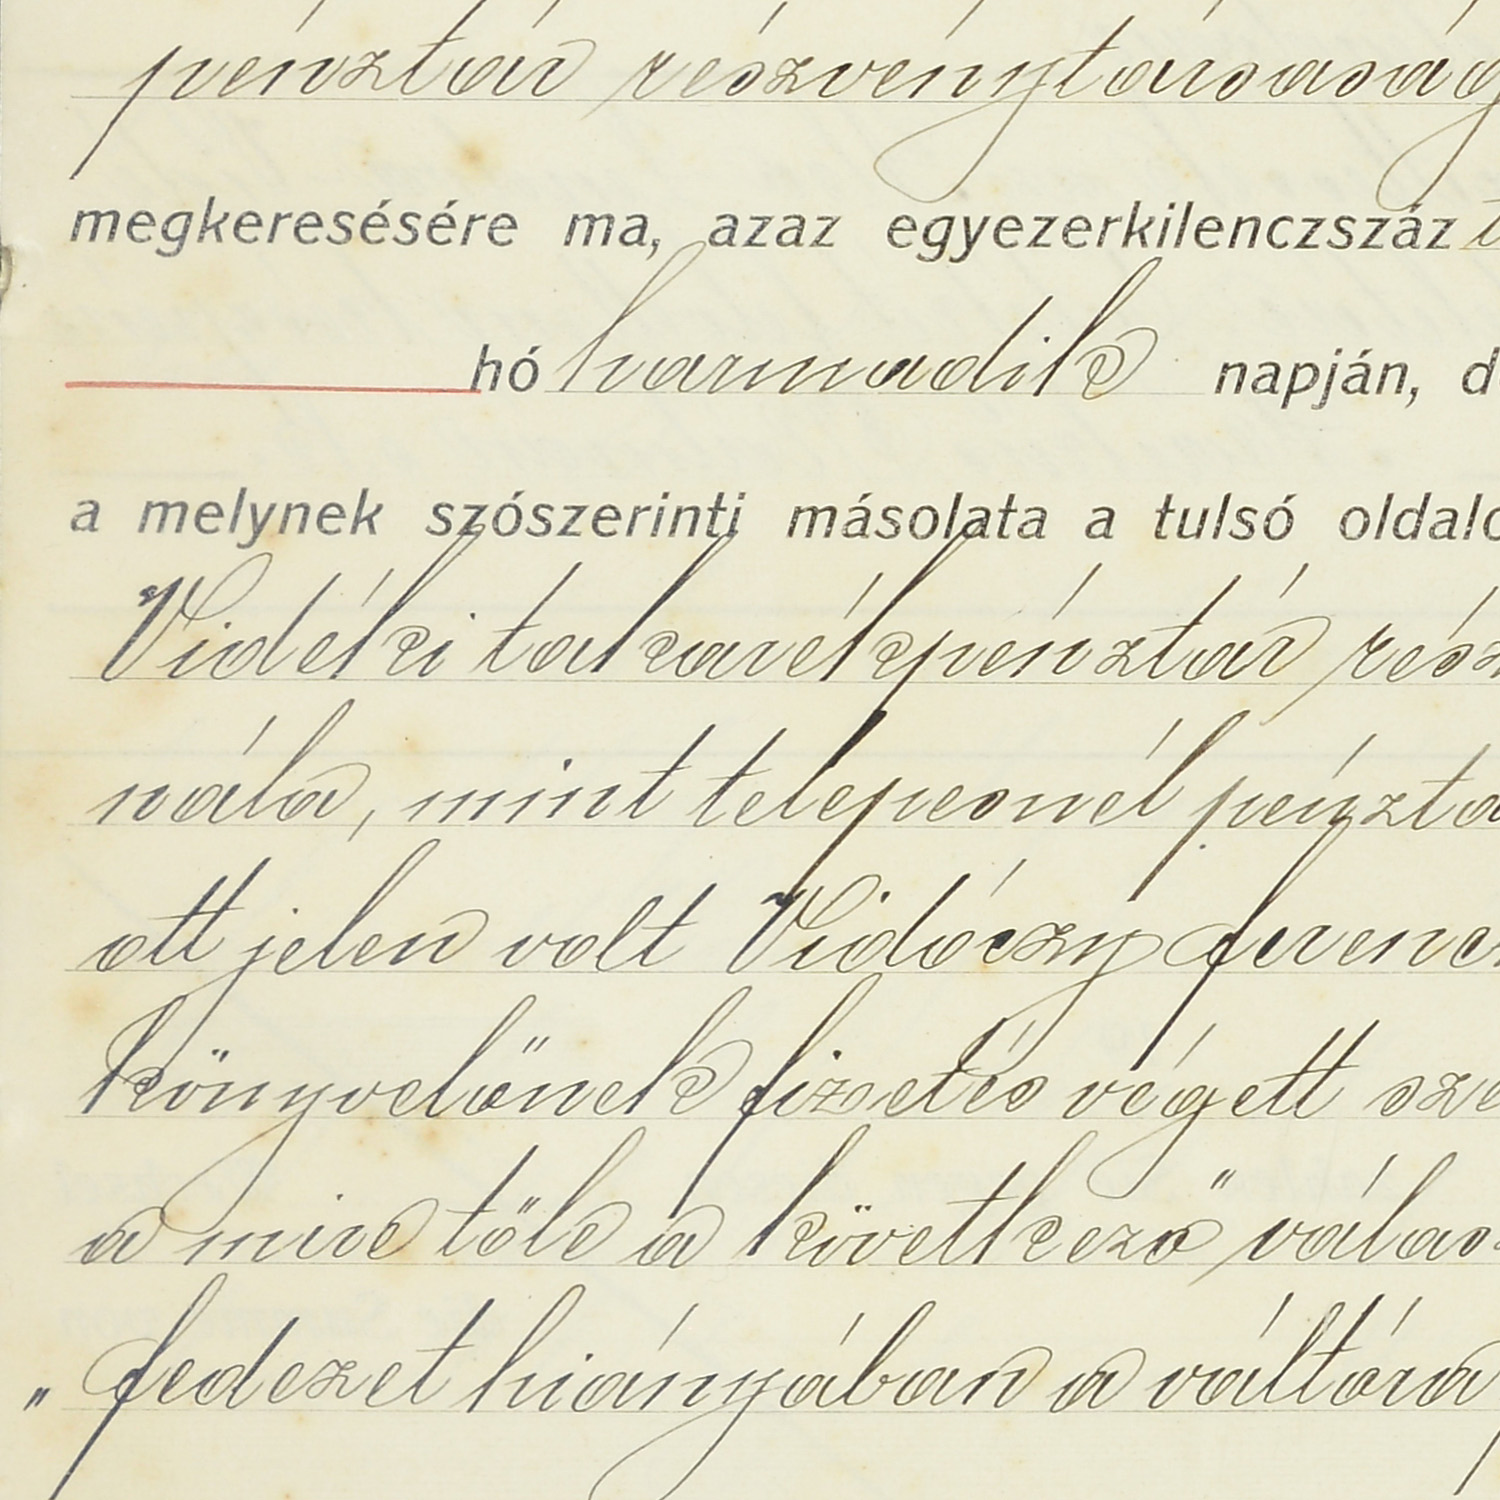 pénztár részvénytársaság
megkeresésére ma, azaz egyezerkilenczszáz
hó harmadik napján, d
a melynek szószerinti másolata a tulsó oldalo
Vidéki takarékpénztár rész
nála, mint telepesnél pénztá
ott jelen volt Vidóczy ferencz
könyvelőnek fizetés végett sze
a mire tőle a következő válas
„fedezet hiányában a váltóra